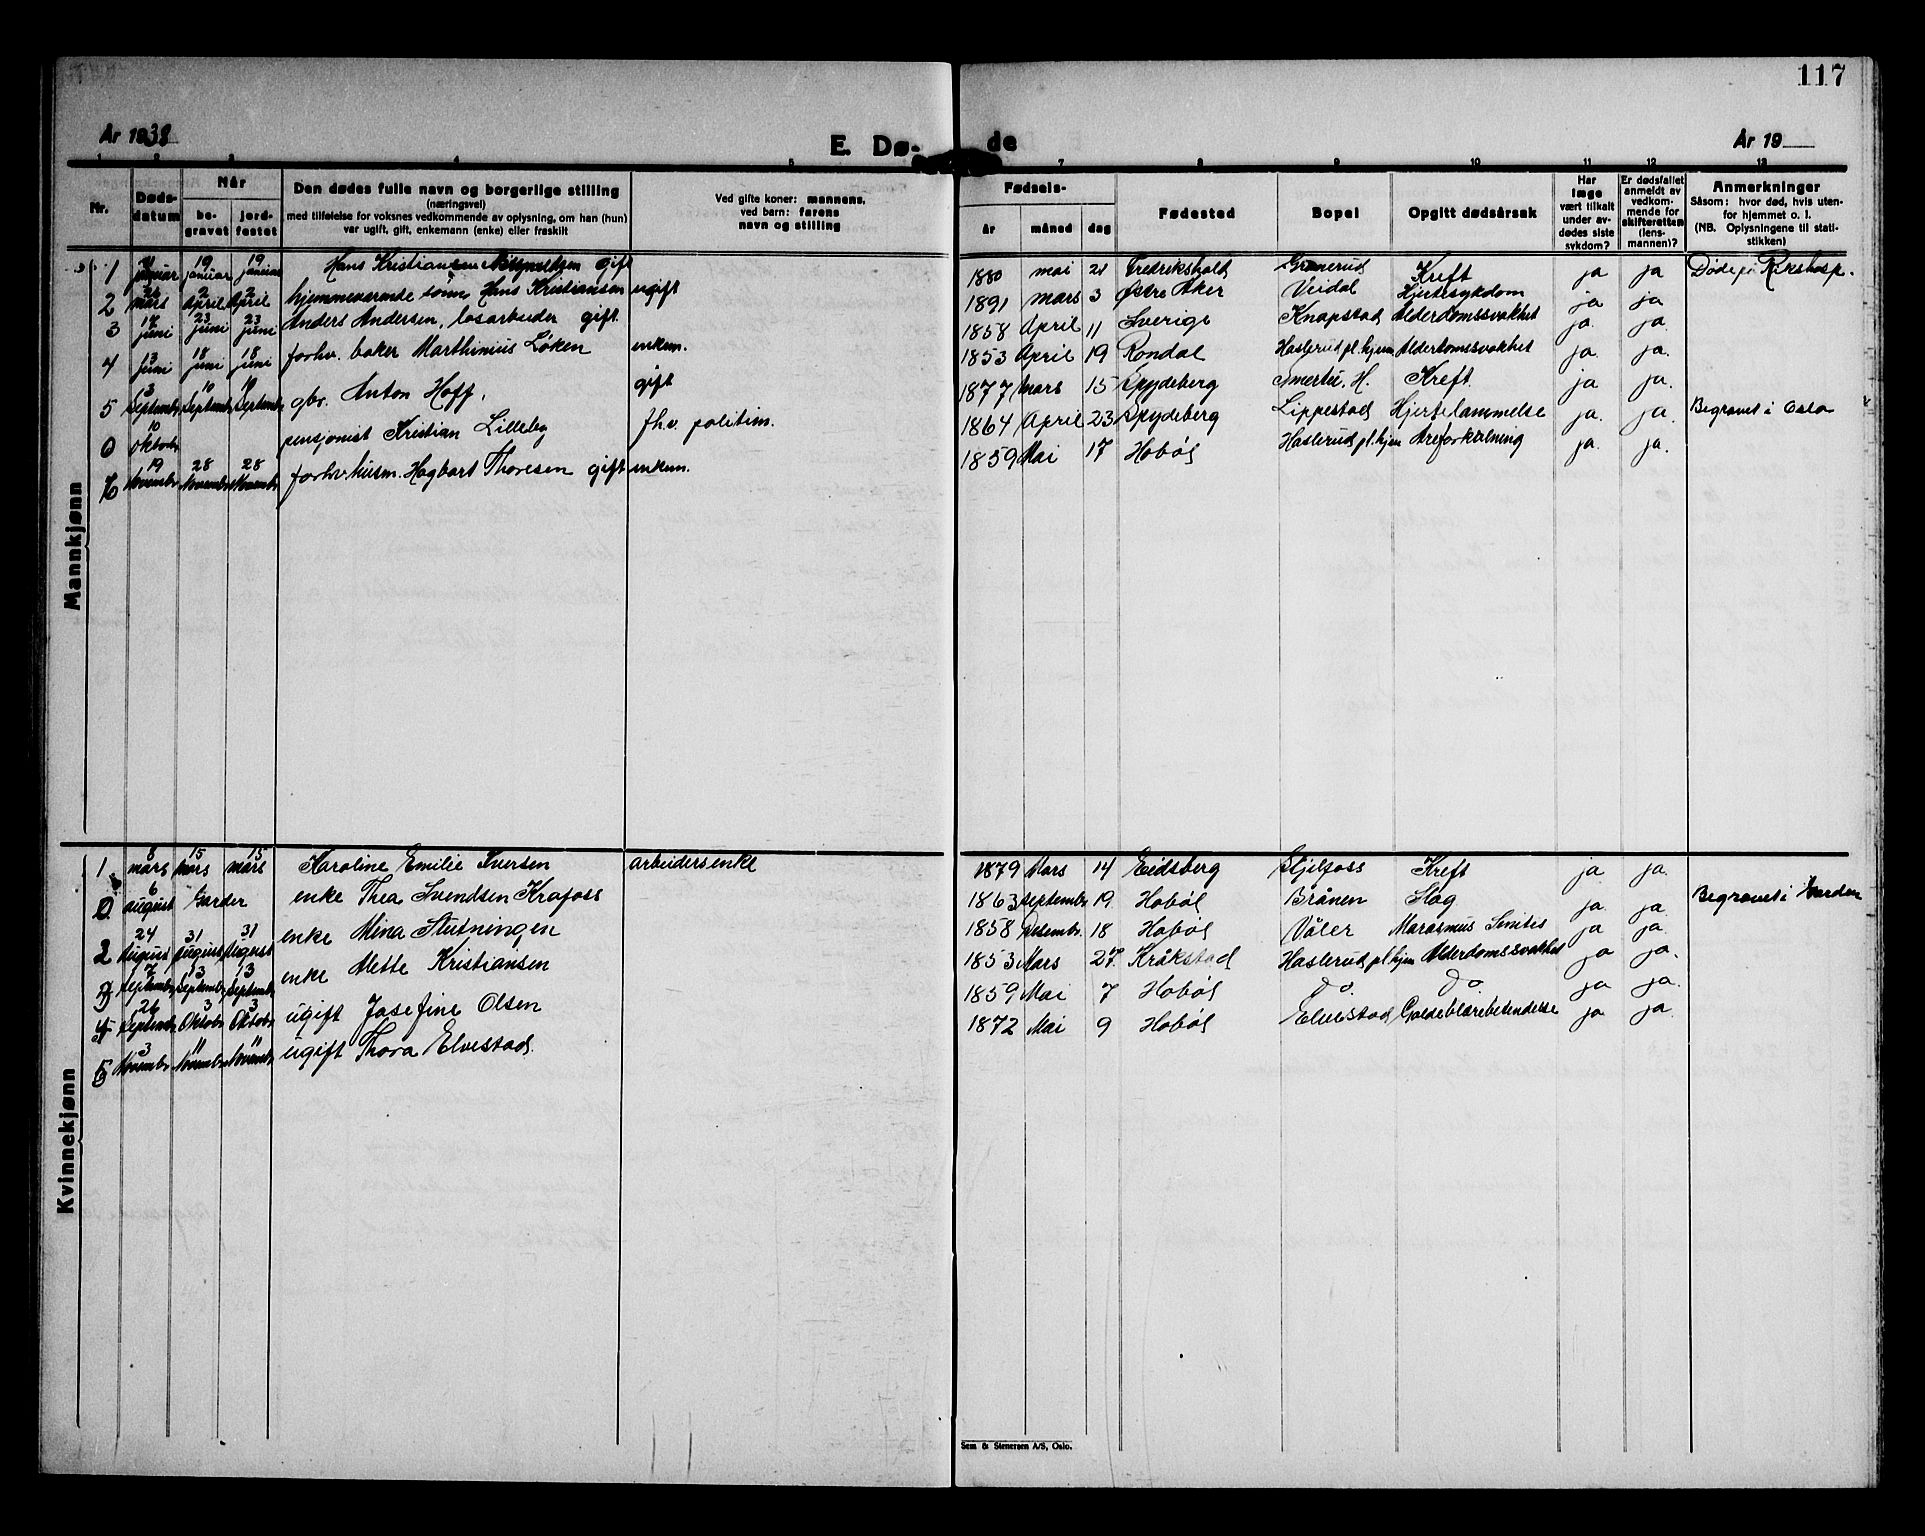 117
År 1938
E. Dø-
de
År 19
1 2 3 4 5 7 8 9 10 11 12 13
Nr.
Døds-
datum
Når
be-
gravet
jord-
festet
Den dødes fulle navn og borgerlige stilling
(næringsvei)
med tilføielse for voksnes vedkommende av oplysning, om han (hun)
var ugift, gift, enkemann (enke) eller fraskilt
Ved gifte koner: mannens,
ved barn: farens
navn og stilling
Fødsels-
år måned dag
Fødested
Bopel
Opgitt dødsårsak
Har
læge
vært tilkalt
under av-
dødes siste
sykdom?
Er dødsfallet
anmeldt av
vedkom-
mende for
skifteretten
(lens-
mannen)?
Anmerkninger
Såsom: hvor død, hvis uten-
for hjemmet o. l.
(NB. Oplysningene til stati-
stikken)
Mannkjønn
1 januar 19 januar 19 januar Hans Kristiansen gift 1880 mai 21 Fredrikshald Granerud Kreft ja ja Døde på Rikshosp.
2 mars 2 April 2 April hjemmeværende sönn Hans Kristiansen ugift 1891 mars 3 Østre Aker Veidal Hjertesykdom ja ja
3 17 juni 23 juni 23 juni Anders Andersen, løsarbeider gift 1858 April 11 Sverige Knapstad Alderdomssvakhet ja ja
4 13 juni 18 juni 18 juni forhv. baker Marthinius Løken enkem. 1853 April 19 Romdal Haslerud pl.hjem Alderdomssvakhet ja ja
5 3 Septembr 10 Septembr 10 Septembr gbr. Anton Hoff, gift 1877 mars 15 Spydeberg Smertu, H. Kreft ja ja.
6 10 Oktober pensjonist Kristian Lilleby fh.v. politim. 1864 April 23 Spydeberg Lippestad Hjertelammelse ja. ja. Begravet i Oslo
19 Novembr 28 Novembr 28 Novembr forhv husm. Hagbart Thoresen gift enkem. 1859 Mai 17 Hobøl Haslerud pl.hjem Areforkalkning ja. ja.
Kvinnekjønn
1 8 mars 15 mars 15 mars Karoline Emilie Iversen arbeidersenke 1879 Mars 14 Eidsberg Skjelfoss Kreft ja ja
6 august Garder enke Thea Svendsen Krafoss 1863 septembr 19 Hobøl Brånen Slag ja. ja Begravet i Garder
24 August 31 August 31 August enke Mina Stutningen 1858 Desembr. 18 Hobøl Våler Marasmus Senilis ja ja.
7 Septembr 13 Septembr 13 Septembr enke Mette Kristiansen 1853 Mars 27. Kråkstad Haslerud pl hjem Alderdomssvakhet ja ja.
26 Septembr 3 Oktobr 3 Oktobr ugift Josefine Olsen 1859 Mai 7 Hobøl do. do. ja ja.
3 Novembr 11 Novembr 11 Novembr ugift Thora Elvestad. 1872 Mai 9 Hobøl Elvestad Galdeblærebetendelse ja ja
Sem & Stenersen A/S, Oslo.